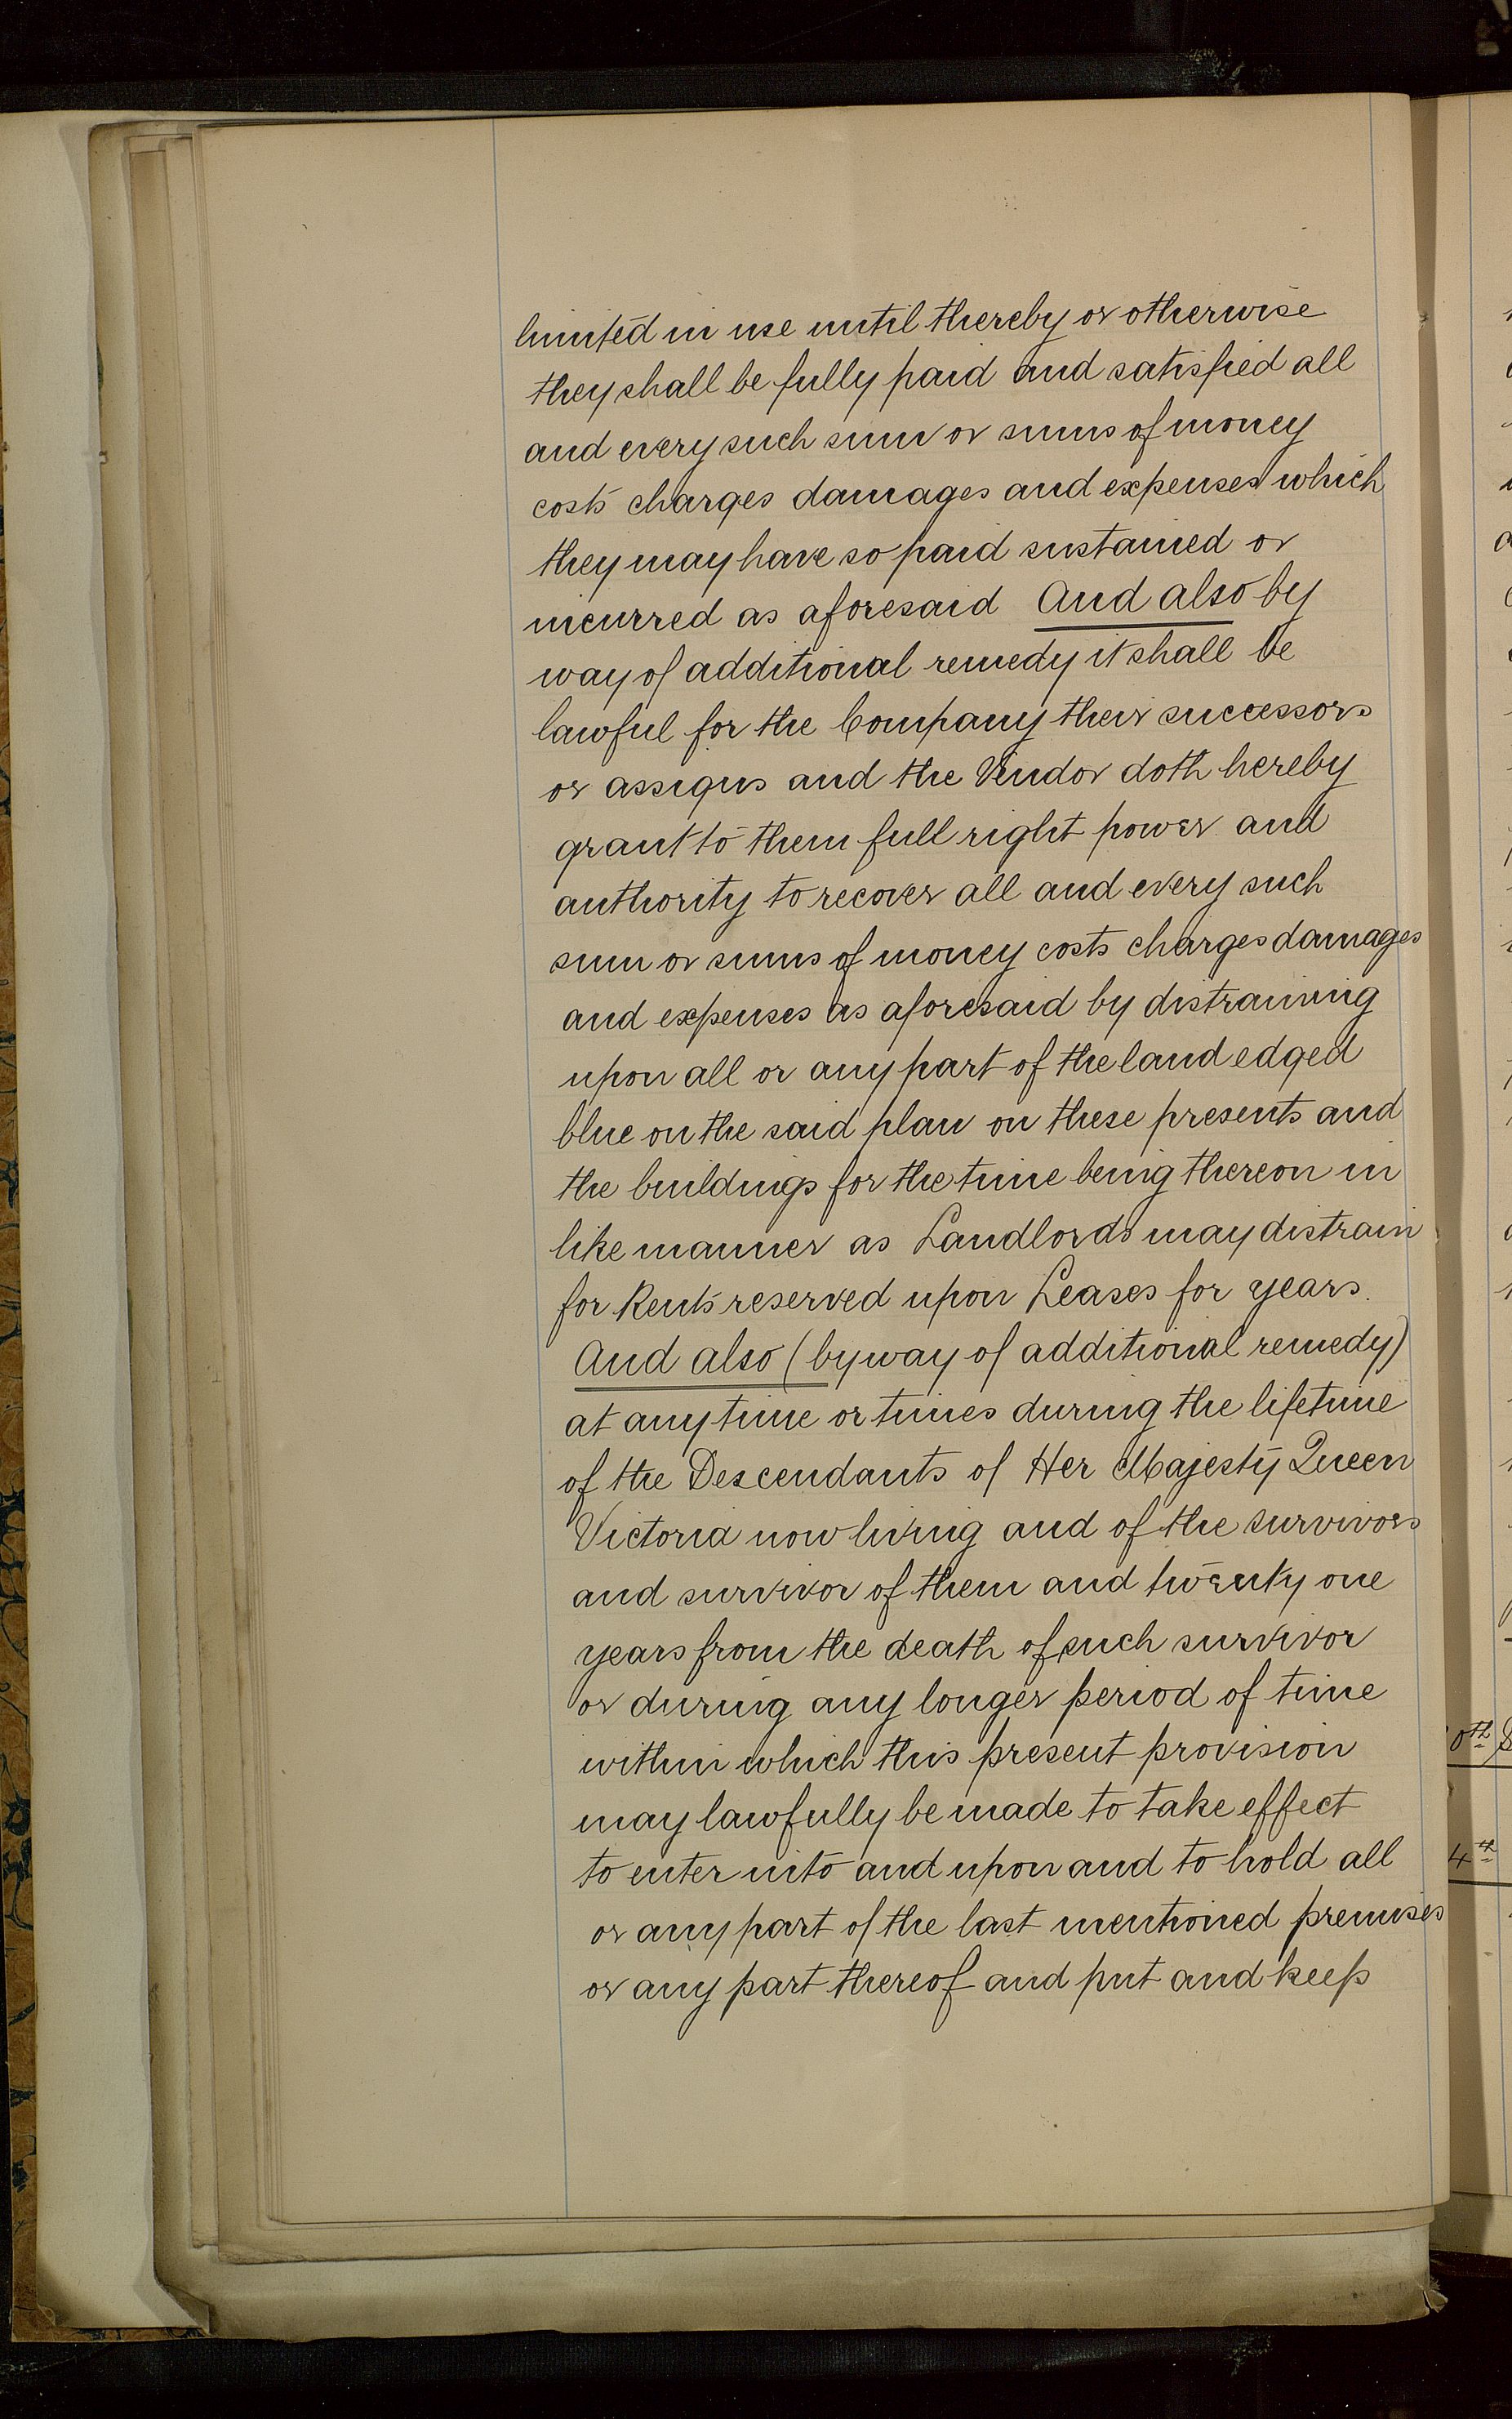 limited in use until thereby or otherwise
they shall be fully paid and satisfied all
and every such sum or sums of money
costs charges damages and expenses which
they may have so paid sustained or
incurred as aforesaid And also by
way of additional remedy it shall be
lawful for the Company their successors
or assigns and the Vendor doth hereby
grant to them full right power and
authority to recover all and every such
sum or sums of money costs charges damages
and expenses as aforesaid by distraining
upon all or any part of the land edged
blue on the said plan on these presents and
the buildings for the time being thereon in
like manner as Landlords may distrain
for Rents reserved upon Leases for years.
And also (by way of additional remedy)
at any time or times during the lifetime
of the Descendants of Her Majesty Queen
Victoria now living and of the survivors
and survivor of them and twenty one
years from the death of such survivor
or during any longer period of time
within which this present provision
may lawfully be made to take effect
to enter into and upon and to hold all
or any part of the last mentioned premises
or any part thereof and put and keep
0th
4th